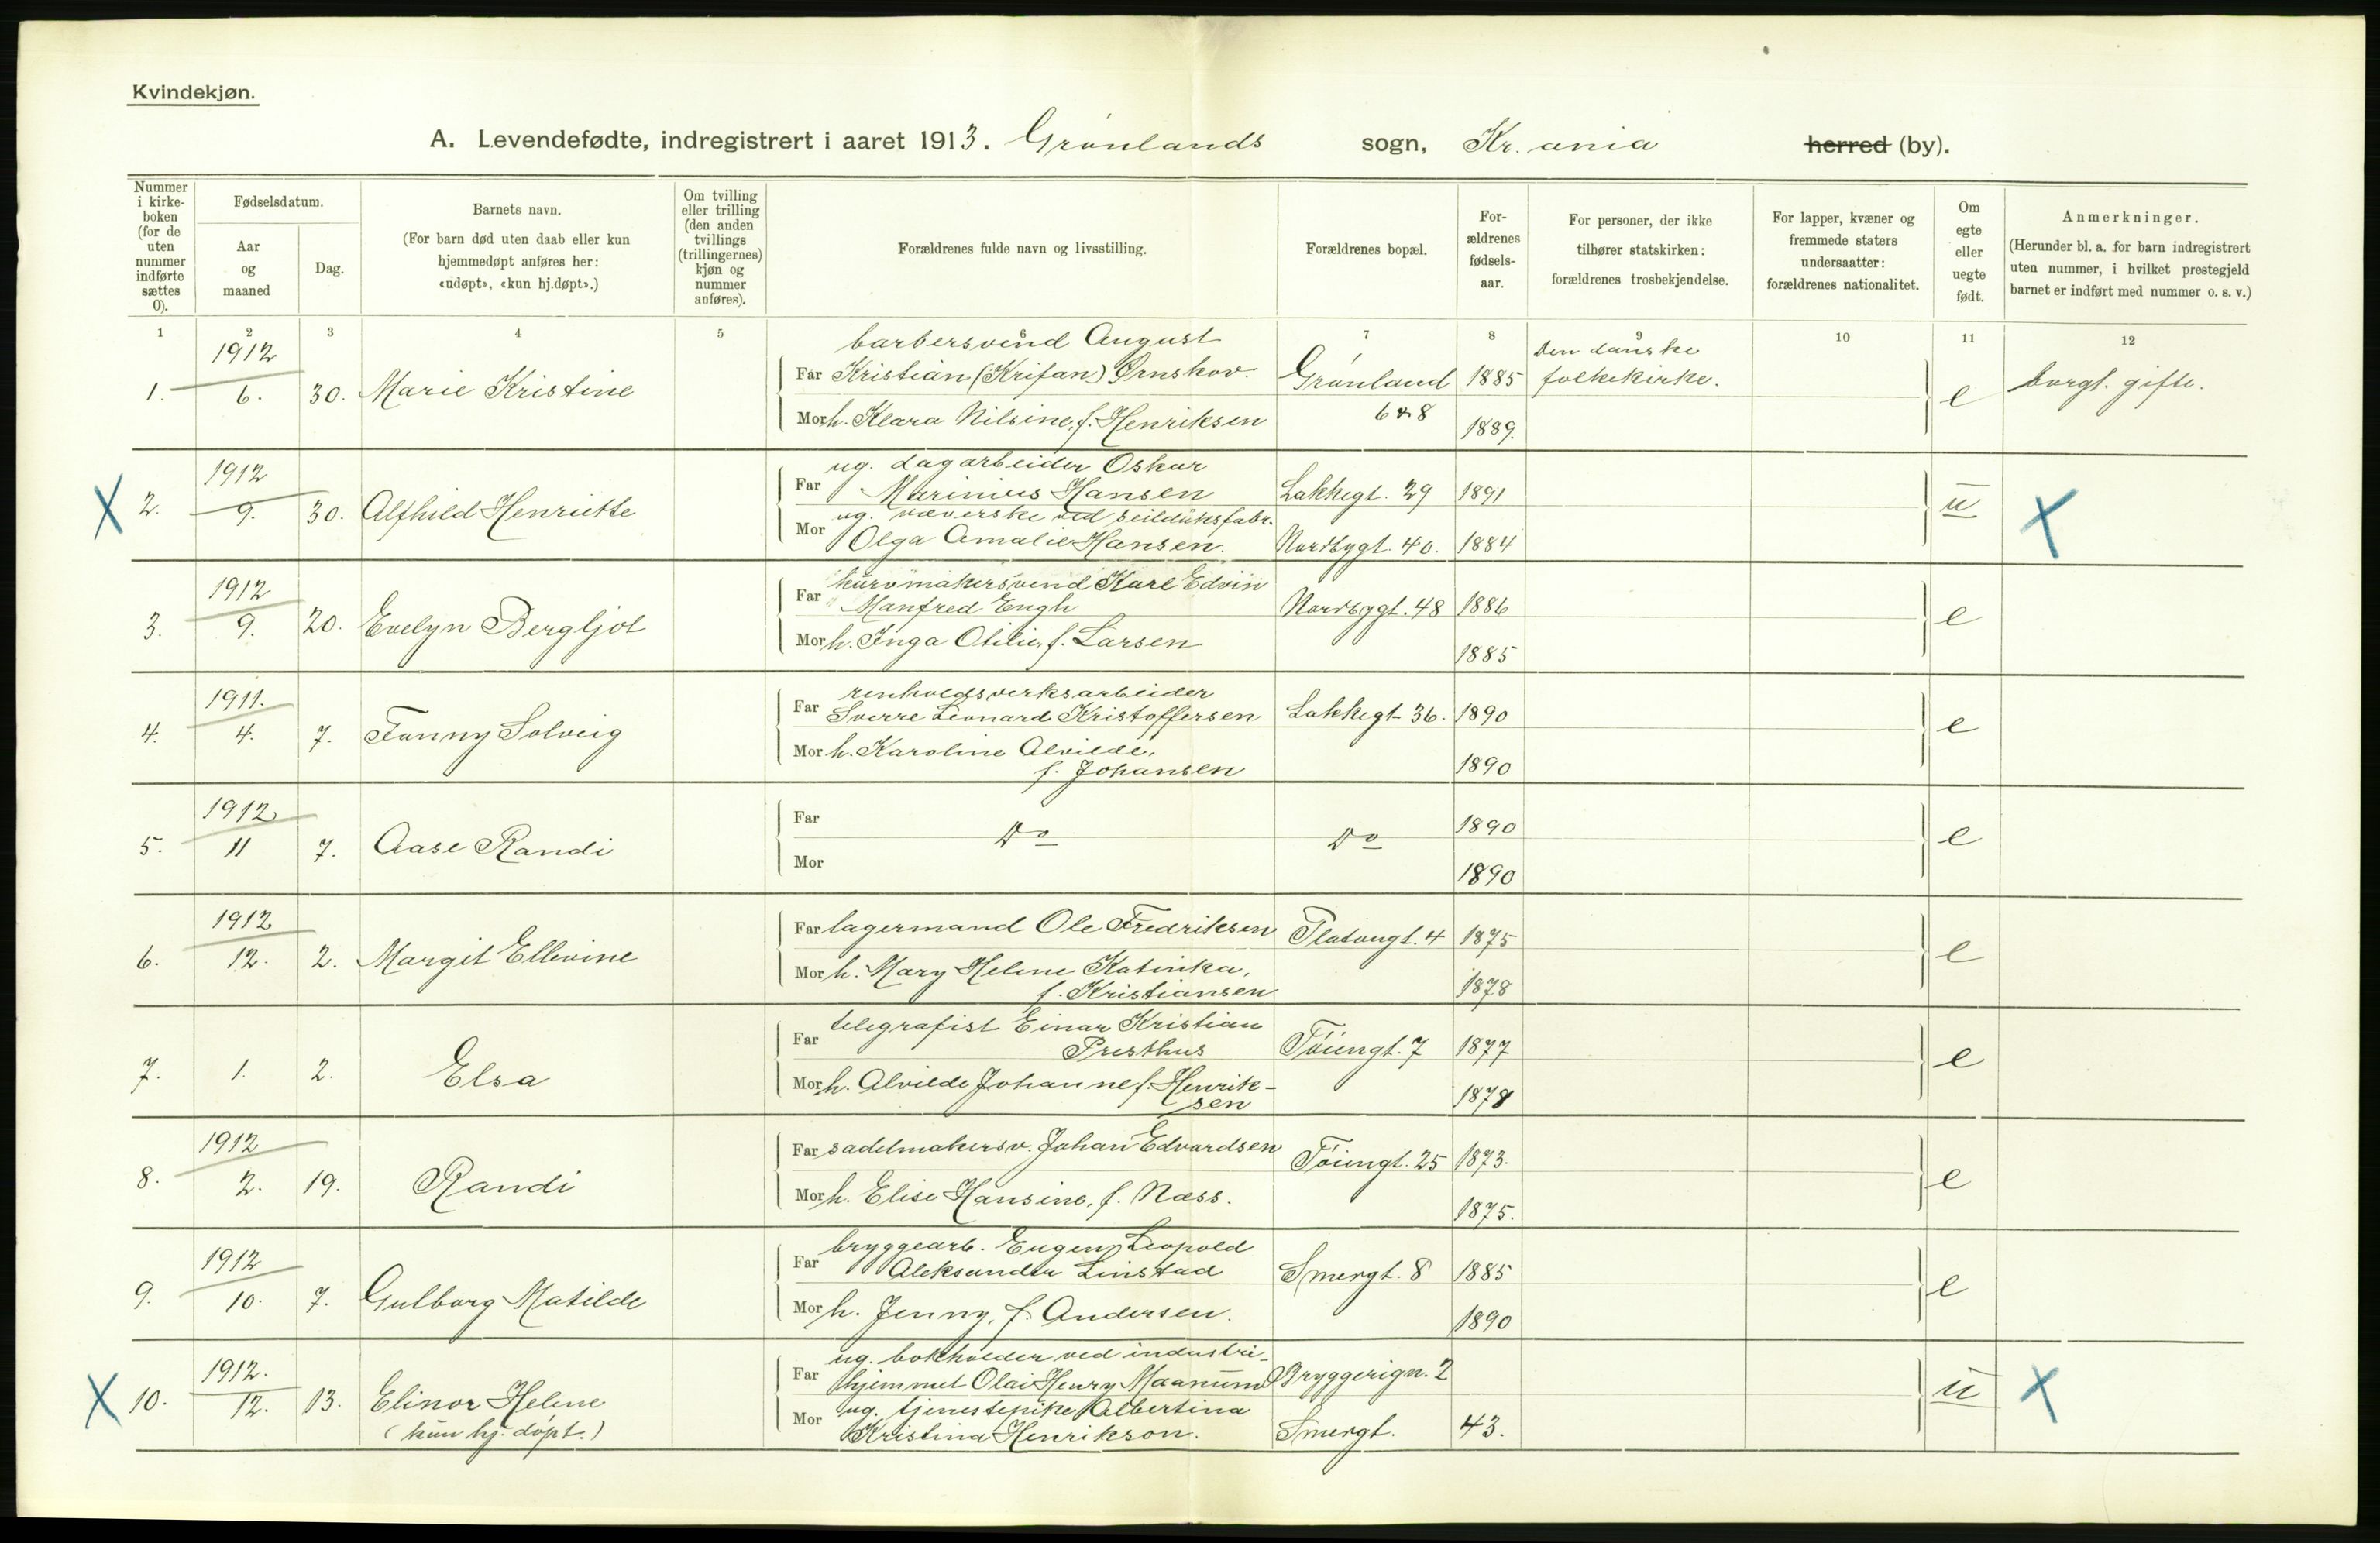 Kvindekjøn.
A. Levendefødte, indregistrert i aaret 1913. Grønlands sogn, Kr.ania herred (by).
Nummer i kirke-boken (for de uten nummer indførte sættes 0).
Fødselsdatum.
Aar og maaned
Dag.
Barnets navn.
(For barn død uten daab eller kun hjemmedøpt anføres her: «udøpt», «kun hj.døpt».)
Om tvilling eller trilling (den anden tvillings (trillingernes) kjøn og nummer anføres).
Forældrenes fulde navn og livsstilling.
Forældrenes bopæl.
For-ældrenes fødsels-aar.
For personer, der ikke tilhører statskirken: forældrenes trosbekjendelse.
For lapper, kvæner og fremmede staters undersaatter: forældrenes nationalitet.
Om egte eller uegte født.
Anmerkninger.
(Herunder bl. a. for barn indregistrert uten nummer, i hvilket prestegjeld barnet er indført med nummer o. s. v.)
1 2 3 4 5 6 7 8 9 10 11 12
1912 barbersvend August Den danske
1. 6. 30. Marie Kristine Far Kristian (Krifan) Ørnskov. Grønland 1885 folkekirke. e borgl. gifte.
Mor h. Klara Nilsine, f. Henriksen 6 & 8 1889.
1912 ug. dagarbeider Oskar
X 2. 9. 30. Alfhild Henriette Far Marinius Hansen Lakkegt. 29 1891 u X
ug. væverske ved seilduksfabr.
Mor Olga Amalie Hansen. Nordbygt. 40. 1884
1912 kurvmakersvend Karl Edvin
3. 9. 20. Evelyn Bergljot Far Manfred Engh Nordbygt. 48 1886 e
Mor h. Inga Otilie, f. Larsen 1885
1911. renholdsverksarbeider
4. 4. 7. Fanny Solveig Far Sverre Leonard Kristoffersen Lakkegt. 36. 1890 e
Mor h. Karoline Alvilde,
f. Johansen 1890
1912
5. 11 7. Aase Randi Far Do Do 1890 e
Mor 1890
1912
6. 12. 2. Margit Ellevine Far lagermand Ole Fredriksen Platougt. 4 1875 e
Mor h. Mary Helene Katinka,
f. Kristiansen 1878
telegrafist Einar Kristian
7. 1. 2. Elsa Far Presthus Tøiengt. 7 1877 e
Mor h. Alvilde Johanne f. Henrik-
sen 1879
1912
8. 2. 19. Randi Far sadelmakersv. Johan Edvardsen Tøiengt. 25 1873. e
Mor h. Elise Hansine, f. Næss. 1875.
1912 bryggearb. Eugen Leopold
9. 10. 7. Gulborg Matilde Far Aleksander Linstad Smergt. 8 1885 e
Mor h. Jenny, f. Andersen. 1890
1912. ug. bokholder ved industri-
X 10. 12. 13. Elinor Helene Far hjemmet Olai Henry Maanum Bryggerign. 2 u X
(kun hj. døpt.) ug. tjenestepike Albertina
Mor Kristina Henrikson. Smergt. 43.